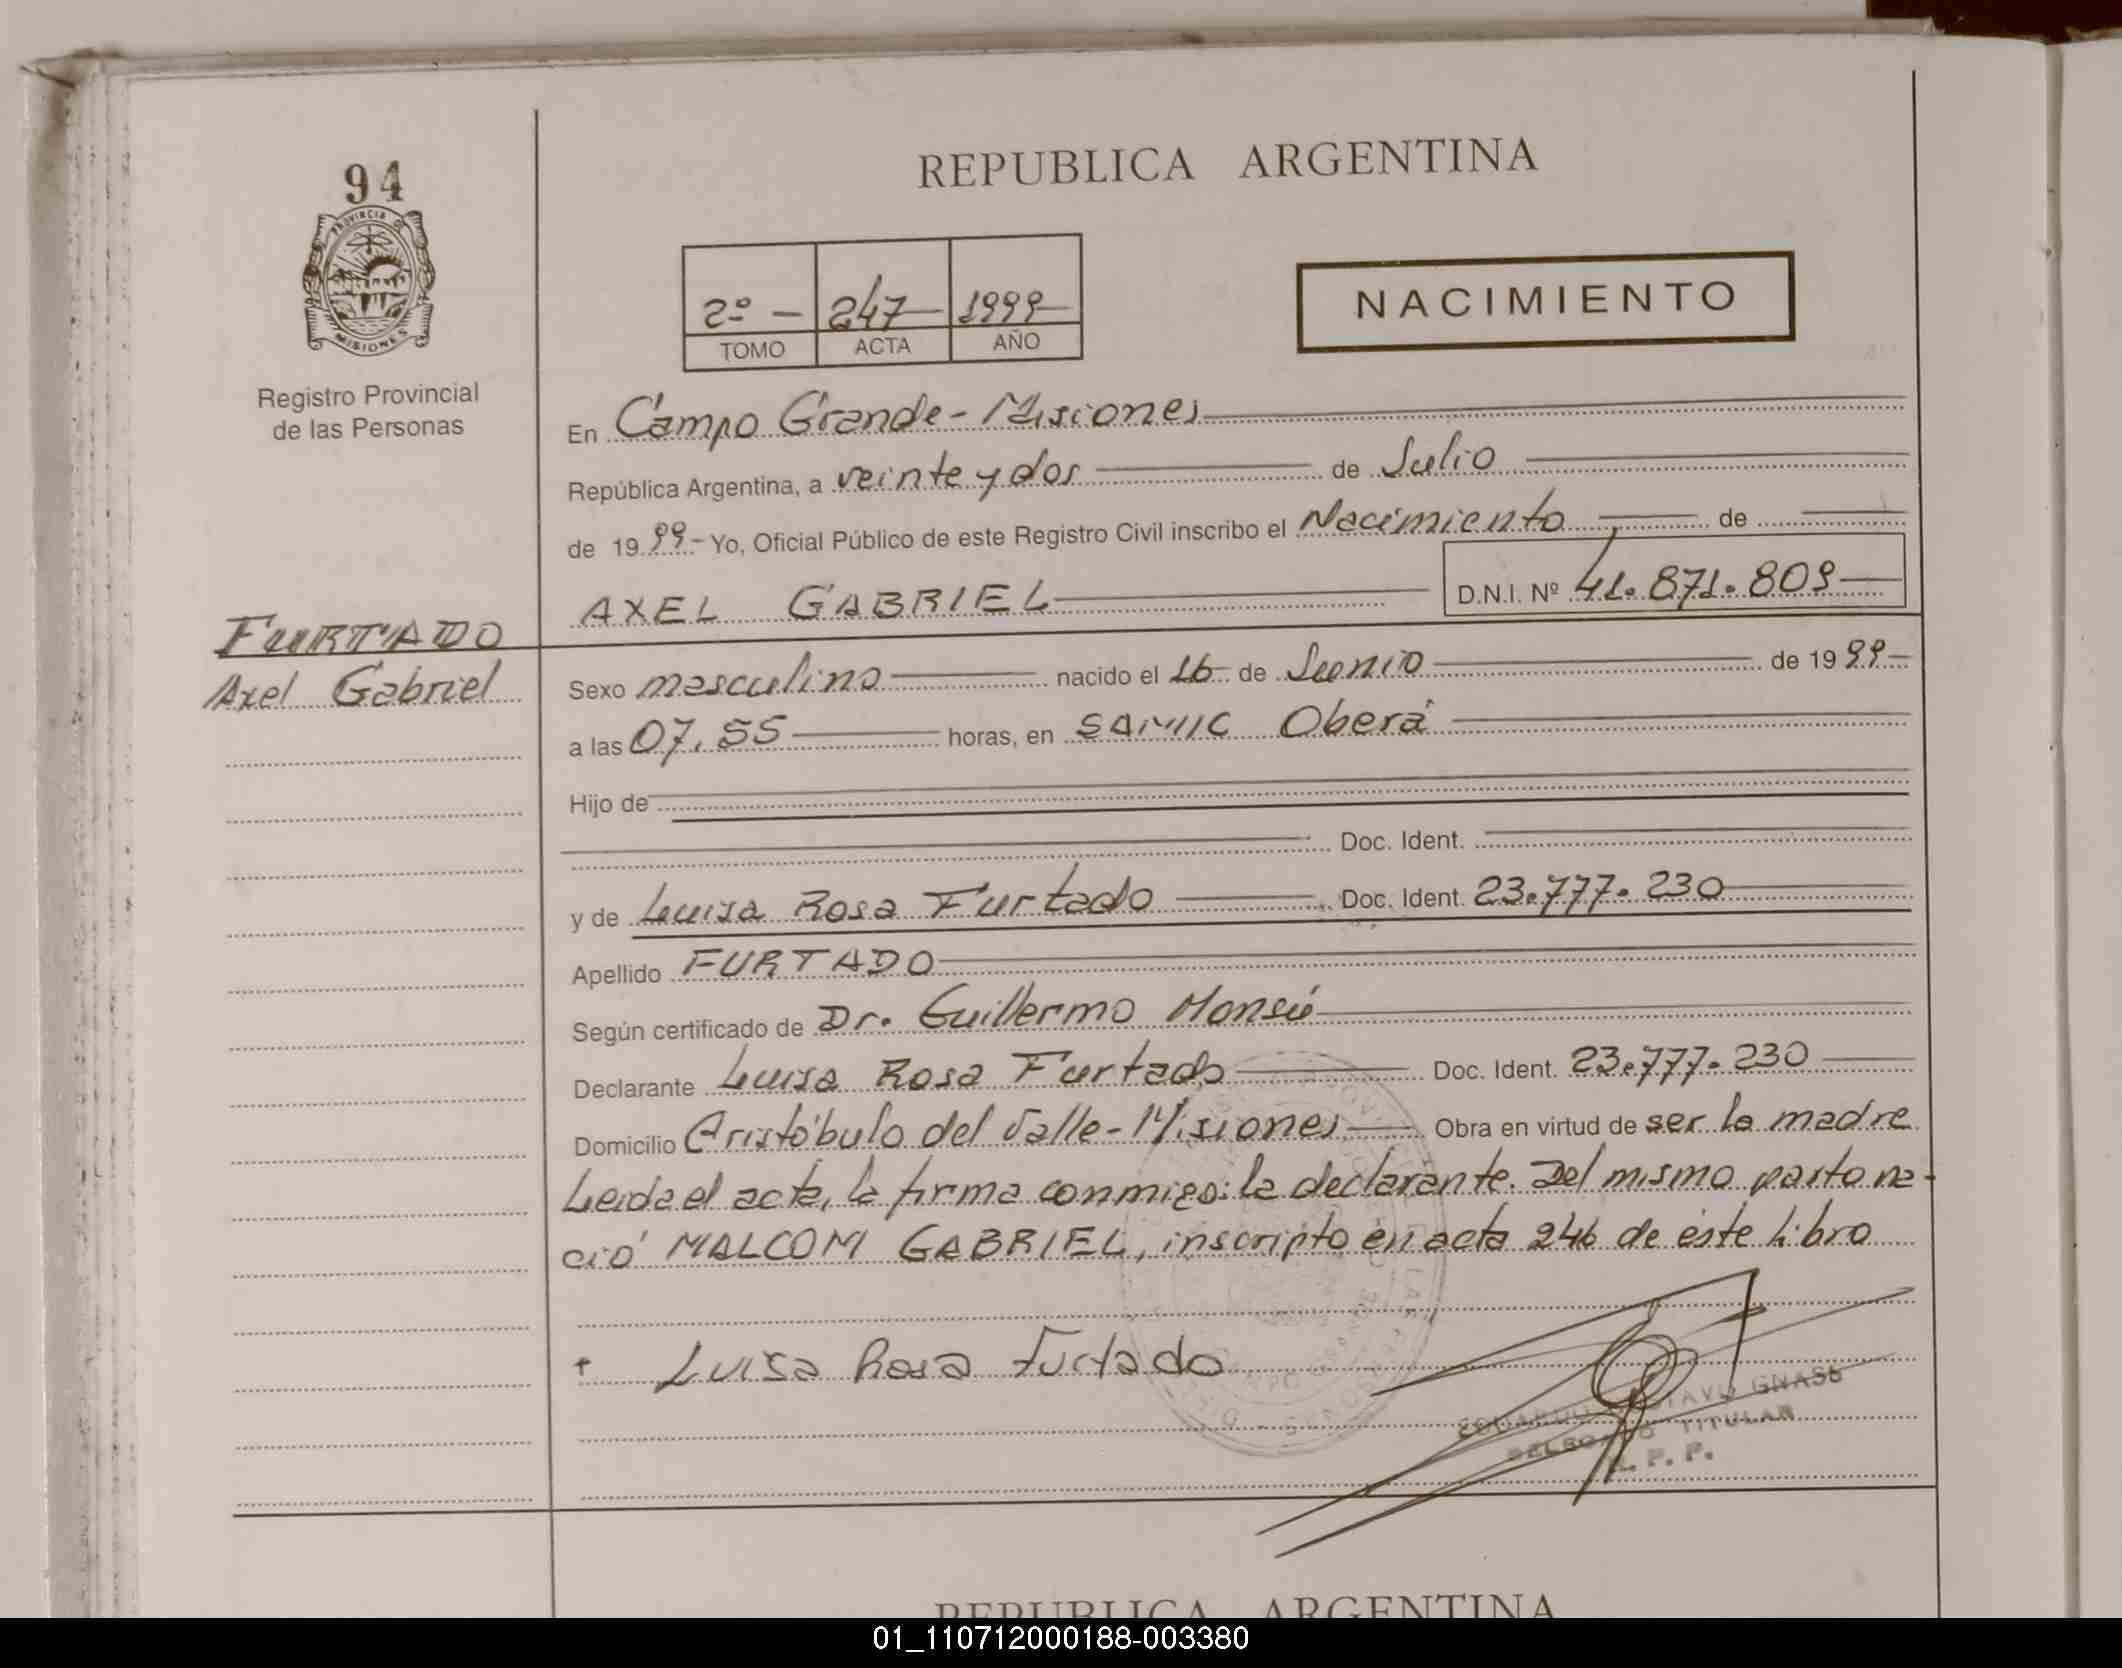 94
PROVINCIA DE
MISIONES
Registro Provincial
de las Personas
FURTADO
Axel Gabriel
REPUBLICA ARGENTINA
2º - 247 1999
TOMO ACTA AÑO
NACIMIENTO
En Campo Grande - Misiones
República Argentina, a veinte y dos de Julio
de 1999 - Yo, Oficial Público de este Registro Civil inscribo el Nacimiento de
AXEL GABRIEL D.N.I. Nº 41.871.809
Sexo masculino nacido el 16 de Junio de 1999
a las 07.55 horas, en SAMIC Oberá
Hijo de
Doc. Ident.
y de Luisa Rosa Furtado Doc. Ident. 23.777.230
Apellido FURTADO
Según certificado de Dr. Guillermo Monsú
Declarante Luisa Rosa Furtado Doc. Ident. 23.777.230
Domicilio Aristóbulo del Valle - Misiones Obra en virtud de ser la madre
Leída el acta, la firma conmigo: la declarante. Del mismo parto na-
ció MALCOM GABRIEL, inscripto en acta 246 de éste Libro
+ Luisa Rosa Furtado
EDUARDO GNASS
DELEGADO TITULAR
R. P. P.
REPUBLICA ARGENTINA
01_110712000188-003380